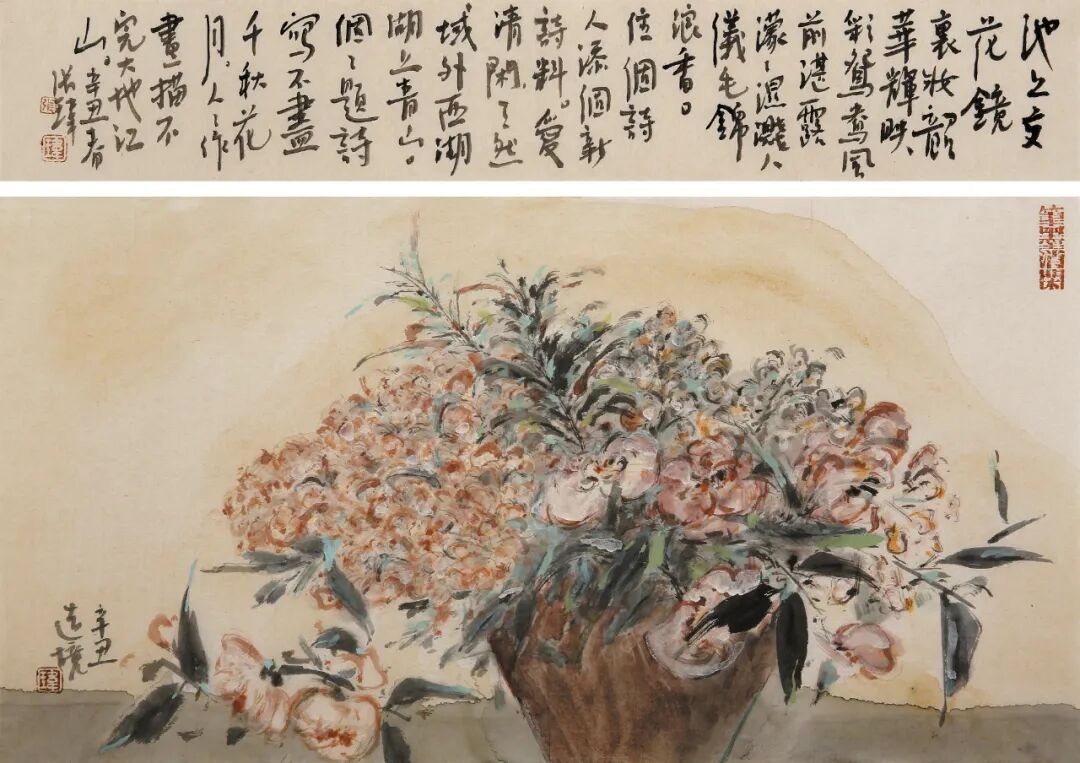 池上交
花鏡
裏妝韻
華輝映
彩鴛鴦風
前湛露
濛濛濕濺人
儀毛錦
浪香。
位個詩
人添個新
詩料。愛
清閑了然
域外西湖
湖上青山。
個個題詩
寫不盡
千秋花
月。人人作
畫描不
完大地江
山。辛丑春
辛丑
造境